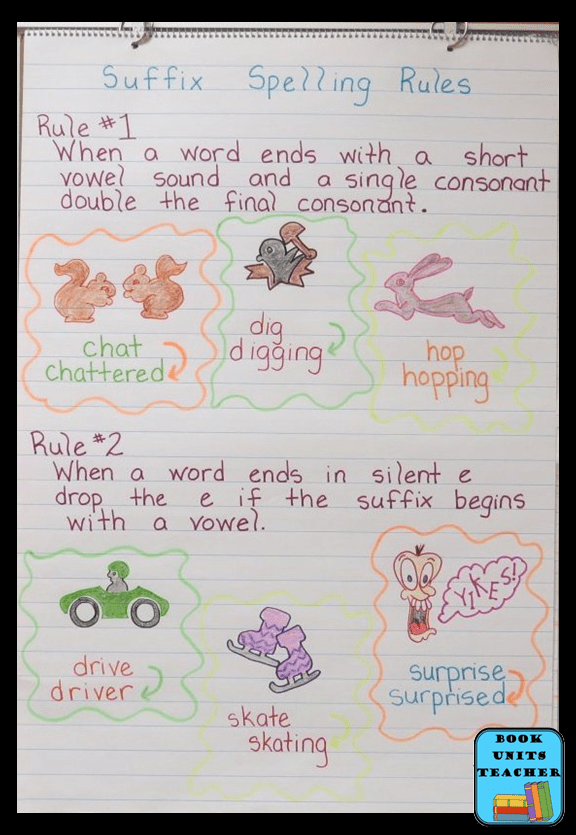 Suffix Spelling Rules
Rule #1
When a word ends with a short
vowel sound and a single consonant
double the final consonant.
chat
chattered
dig
digging
hop
hopping
Rule #2
When a word ends in silent e
drop the e if the suffix begins
with a vowel.
drive
driver
skate
skating
YIKES!
surprise
surprised
BOOK
UNITS
TEACHER